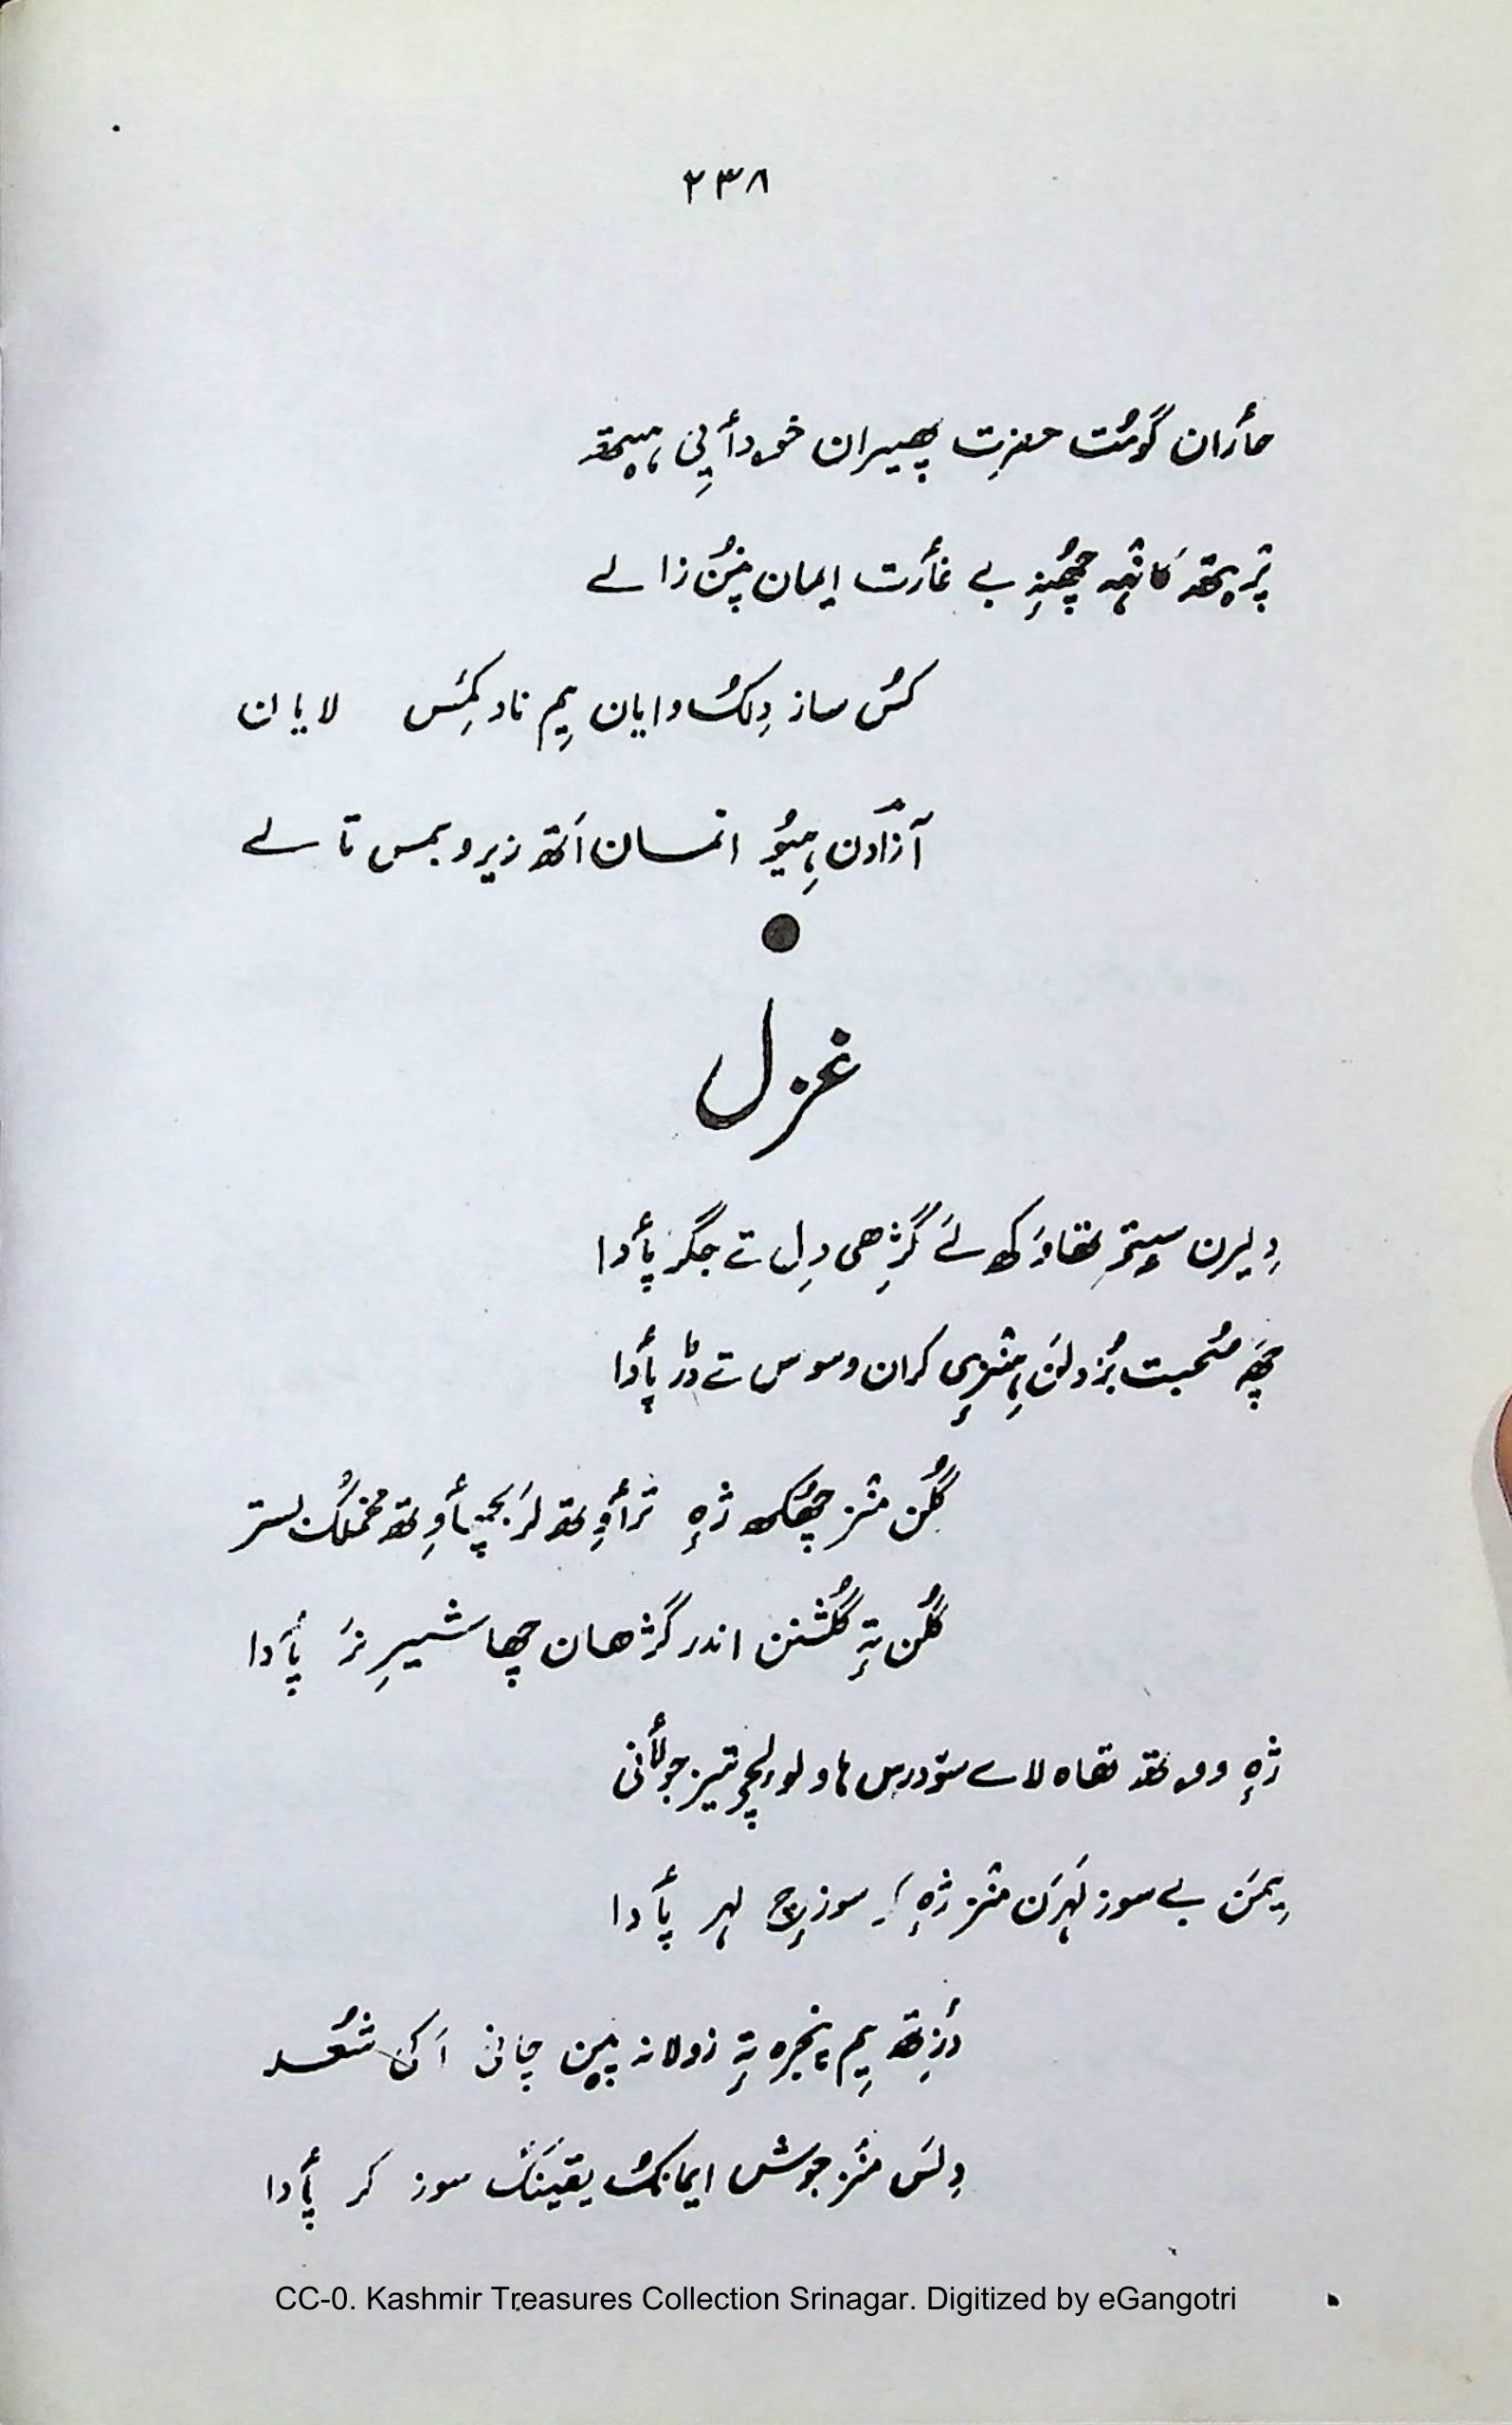 ۲۳۸
حٲران گومُت حضرت پھیران خودٲیی ہیتھ
پٔر پتھ کانٛہہ چھُنہٕ بے غٲرت ایمان پنُن زالے
کُس ساز دِلُک وایان یِم ناد کَمِس لایان
آزادن ہِیُو انسان اَتھ زیر و بمس تالے
غزل
دِلیرن سیتۍ تھاوَکھ لَے گژھی دِل تے جگر پٲدا
چھَ صُحبت بُزدلَن ہِنٛزٕی کران وسوس تے ڈر پٲدا
گُلن منٛز چھُکھ ژٕہ ترٲوِتھ لَر بچھٲوِتھ مخملُک بستر
گُلن تہٕ گُلشنن اندر گژھان چھا شیرِ نَر پٲدا
ژٕہ ووتھ تھاہ لاے سودرس ہاو لولٕچ تیز جولٲنی
یِمَن بے سوز لَہرَن منٛز ژٕہ کر سوزٕچ لہر پٲدا
دٔزِتھ یِم پنجرہ تہٕ زولانہ پین چانی اَکی شُعلہ
دِلَس منٛز جوش ایمانُک یقینُک سوز کر پٲدا
CC-0. Kashmir Treasures Collection Srinagar. Digitized by eGangotri